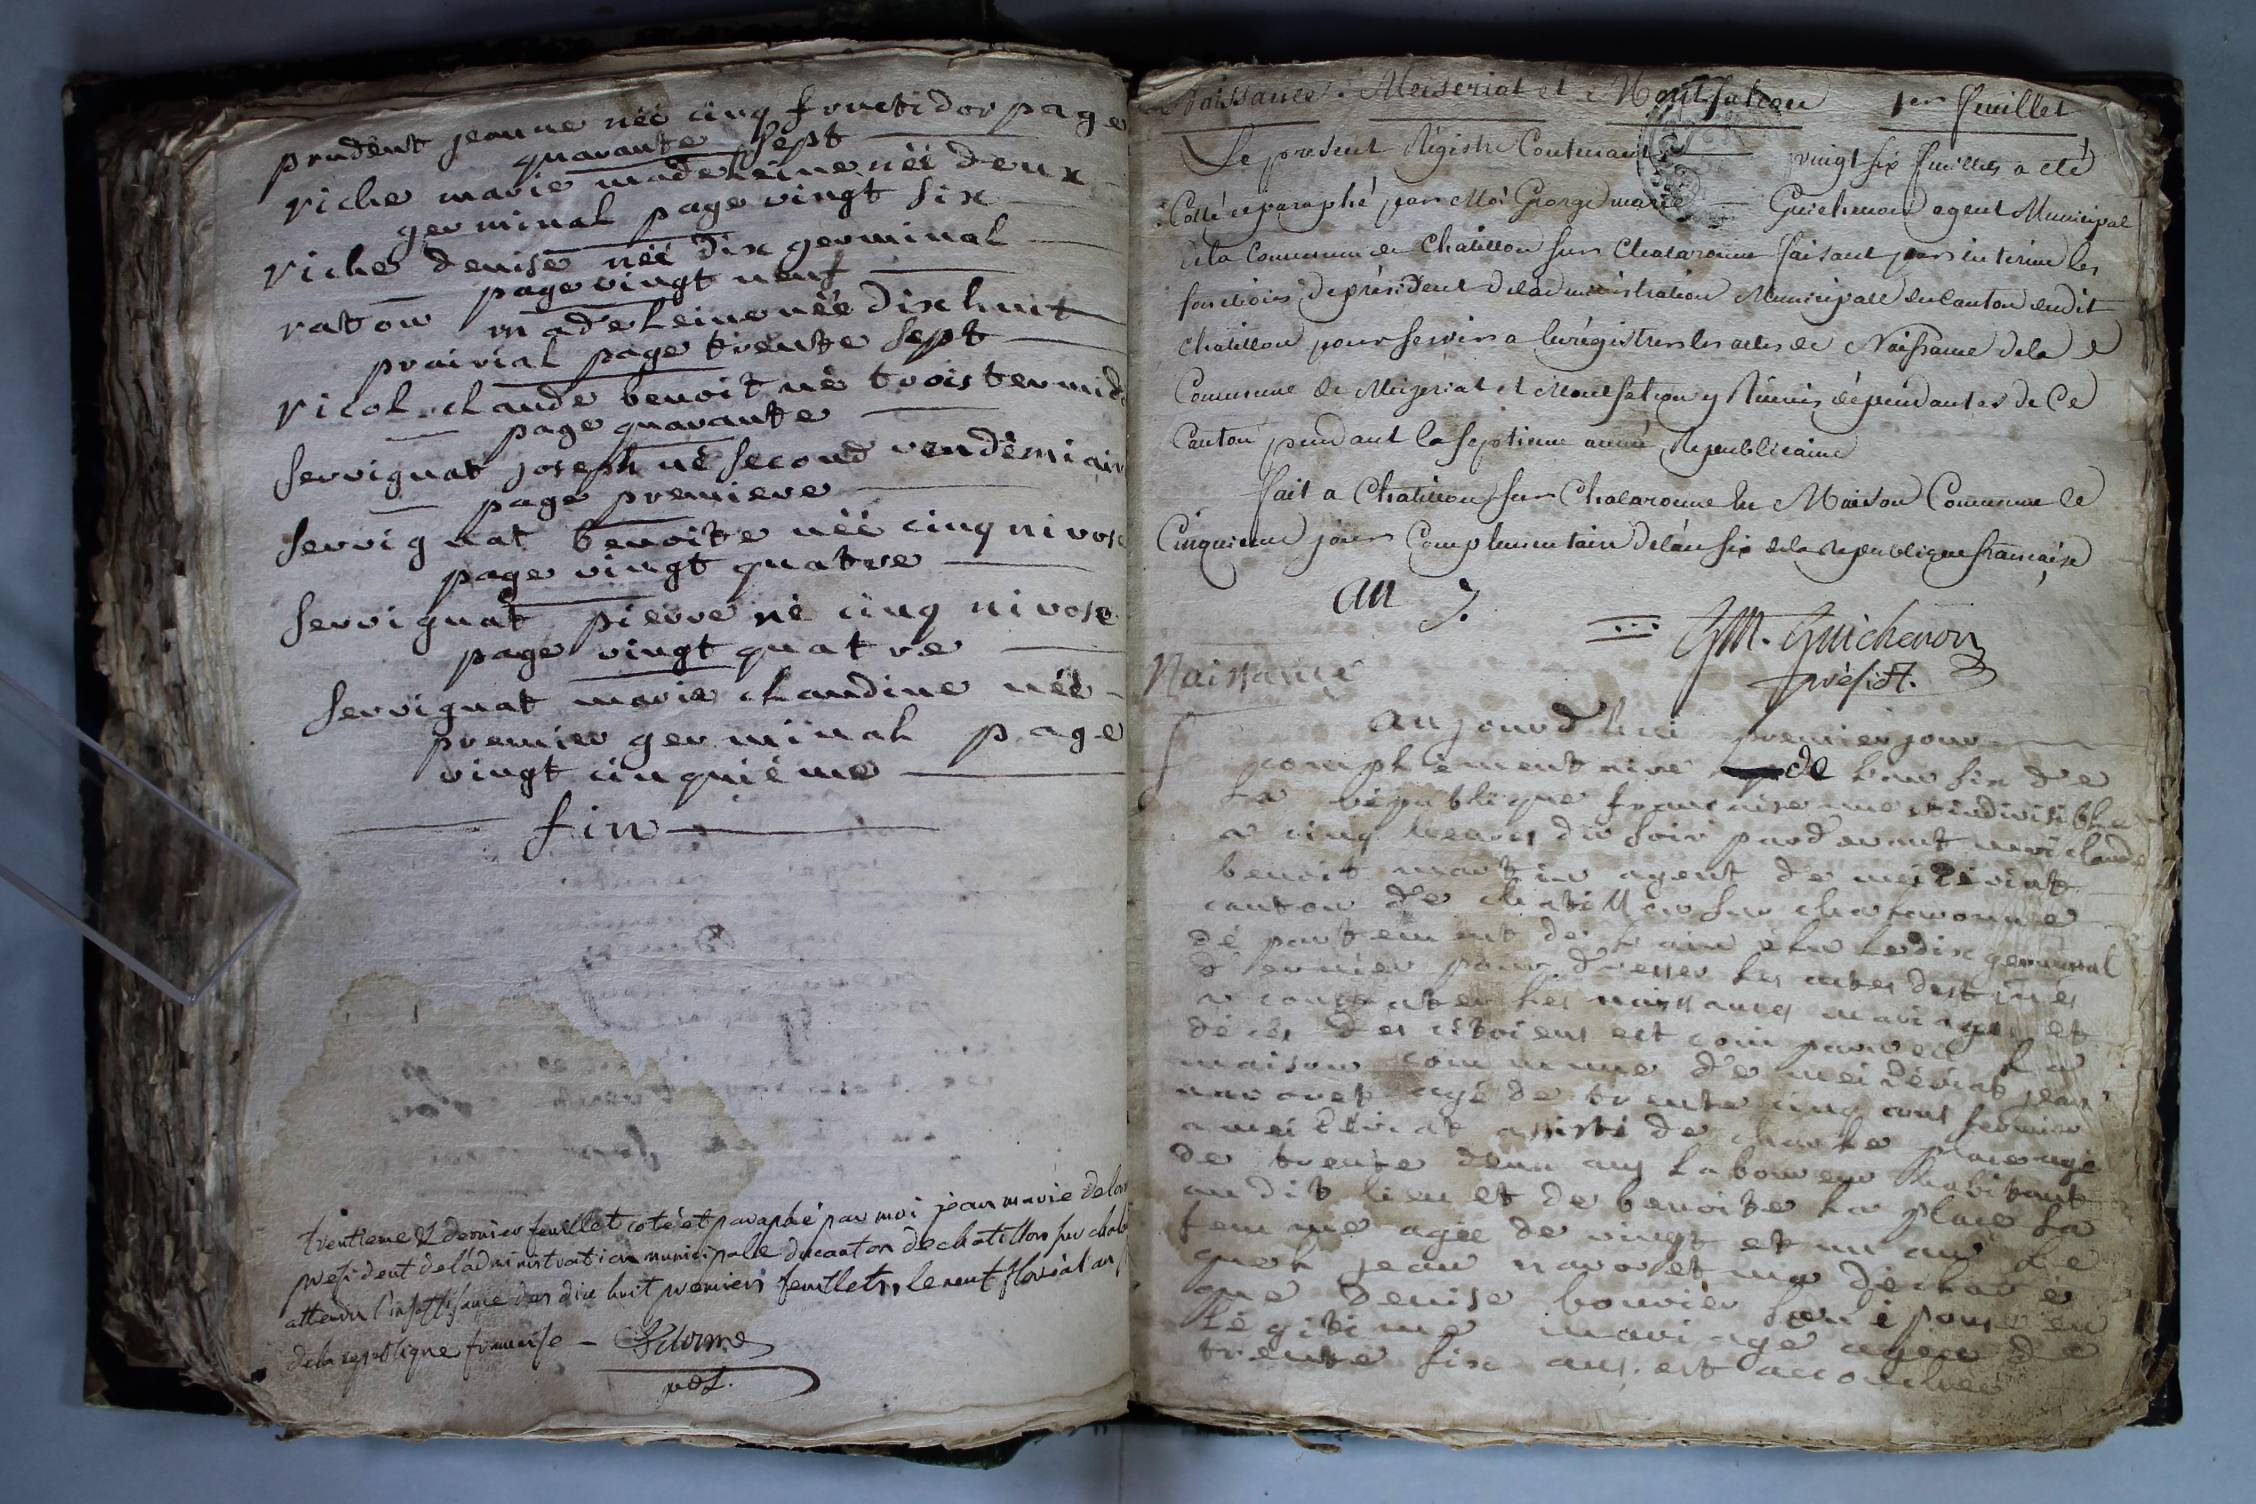 prudent jeanne née cinq fructidor page
quarante sept
riche marie madeleine née deux
germinal page vingt six
riche denise née dix germinal
page vingt neuf
raton madeleine née dix huit
prairial page trente sept
ricol claude benoit né trois termid
page quarante
servignat joseph né second vendémiair
page premiere
servignat benoite née cinq nivose
page vingt quatre
servignat pierre né cinq nivose
page vingt quatre
servignat marie claudine née
premier germinal page
vingt cinquiéme
fin
trentieme & dernier feuillet coté et paraphé par moi jean marie delor
president de l'administration municipale du canton de chatillon sur chala
attendu l'insuffisance des dix huit premiers feuillets, le neuf floréal an
de la republique francaise - Delorme
pdt.
Naissance. Meiseriat et Montfalcon 1er feuillet
Le present Régistre Contenant vingt six feuillets a eté
Cotté et paraphé par Moi George marie Guichenon agent Municipal
de la Commune de Chatillon sur Chalaronne faisant par interim les
fonctions de président de ladministration Municipale du Canton dudit
chatillon pour servir a lenrégistrer les actes de Naissance de la
Commune de Mezeriat et Montfalcon y Réunis dépendantes de Ce
Canton pendant la septieme année Republicaine
fait a Chatillon sur Chalaronne En Maison Commune le
Cinquieme jour Complementaire de lan six de la Republique francaise
an 7.
GM. Guichenon
présidt.
Naissance
aujourdhui premier jour
complémentaire de l'an six de
la république francaise une et indivisible
a cinq heures du soir pardevant moi claude
benoit martin agent de meizériat
canton de chatillon sur chalaronne
département de l'ain élu le dix germinal
dernier pour dresser les actes destinés
a constater les naissances mariages et
décès des citoiens est comparu en la
maison commune de meizériat jean
navoret agé de trente cinq ans fermier
a meizériat assisté de charle place agé
de trente deux ans laboureur habitant
audit lieu et de benoite la place sa
femme agée de vingt et un an le
quel jean navoret ma déclaré
que denise bouvier son épouse en
légitime mariage agée de
trente six ans est accouchée